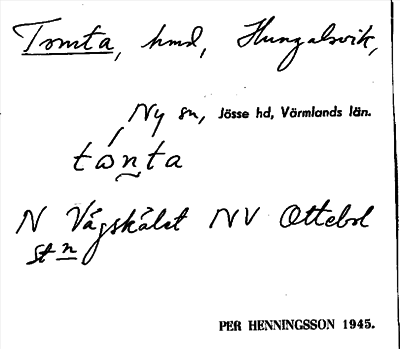 Tomta, hmd, Hungalsvik,
Ny sn, Jösse hd, Värmlands län.
tònta
N Vägskälet NV Ottebol
st n
PER HENNINGSSON 1945.